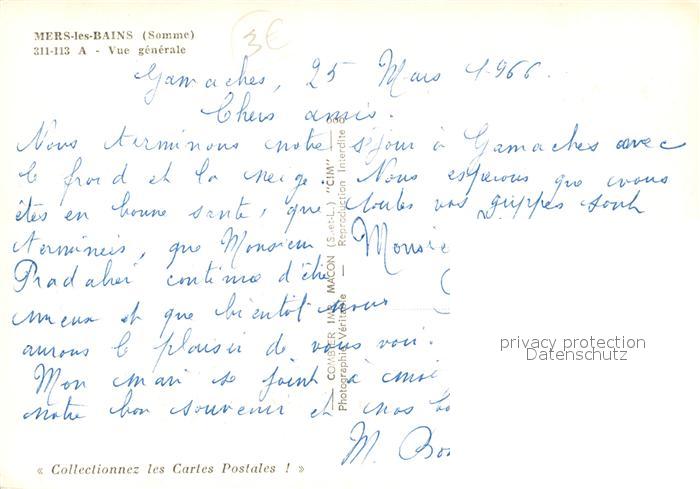 MERS-les-BAINS (Somme)
311-113 A - Vue générale
3€
Gamaches, 25 Mars 1966.
Chers amis.
Nous terminons notre séjour à Gamaches avec
le froid et la neige. Nous espérons que vous
êtes en bonne santé, que toutes vos grippes sont
terminées, que Monsieur
continue d'être
mieux et que bientôt nous
aurons le plaisir de vous voir.
Mon mari se joint à moi
notre bon souvenir et nos bo
M. Bo
Monsie
COMBIER IMP. MACON (S.-et-L.) "CIM"
Photographie Véritable — Reproduction Interdite
privacy protection
Datenschutz
« Collectionnez les Cartes Postales ! »